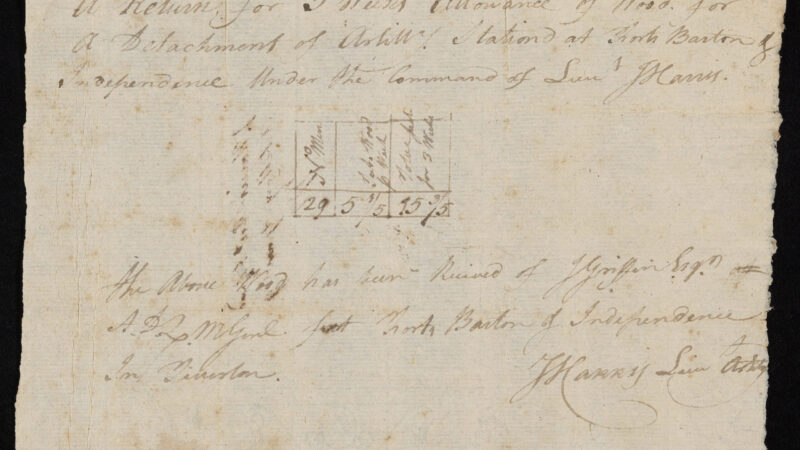 A Return for 3 Weeks Allowance of Wood for
A Detachment of Artilly. Stationd at Forts Barton &
Independence Under the Command of Lieut JHarris.
No Men
feet Wood p Week
Total feet for 3 Weeks
29 5 4/5 15
the Above Wood has been Recived of JGriffin Esqr.
A. D. Q. M. Genl. Forts Barton & Independence
In Tiverton.
JHarris Lieut Artily